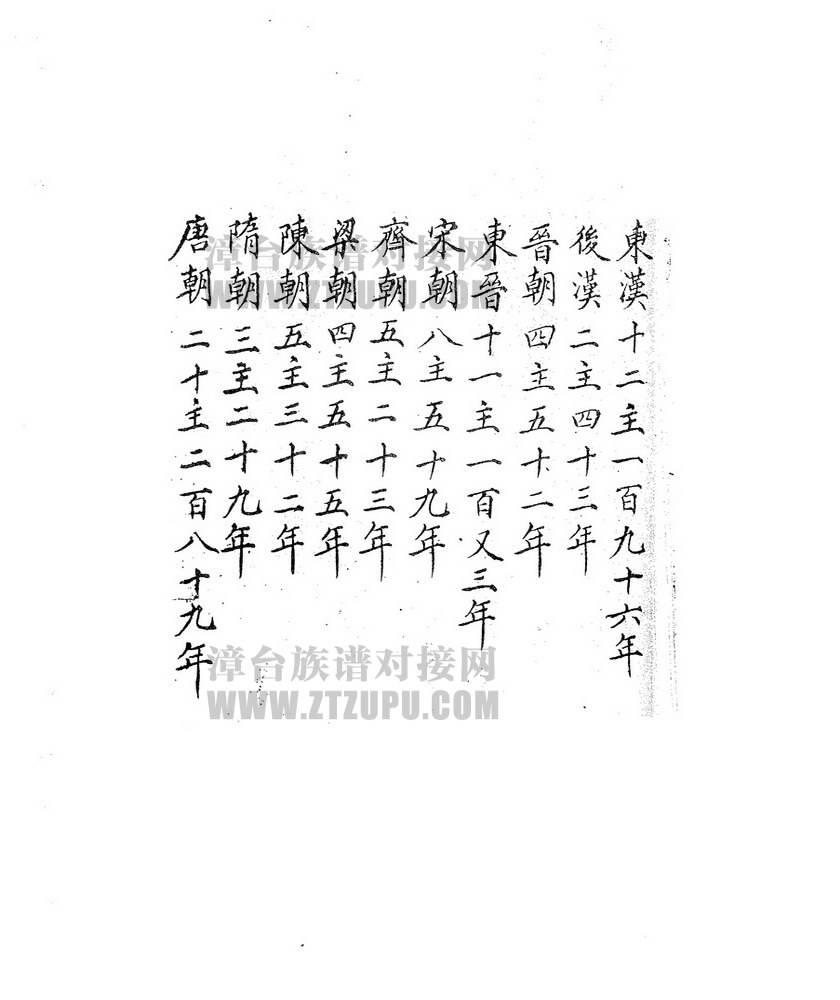 東漢十二主一百九十六年
後漢二主四十三年
晉朝四主五十二年
東晉十一主一百又三年
宋朝八主五十九年
齊朝五主二十三年
梁朝四主五十五年
陳朝五主三十二年
隋朝三主二十九年
唐朝二十主二百八十九年
漳台族谱对接网
WWW.ZTZUPU.COM
漳台族谱对接网
WWW.ZTZUPU.COM